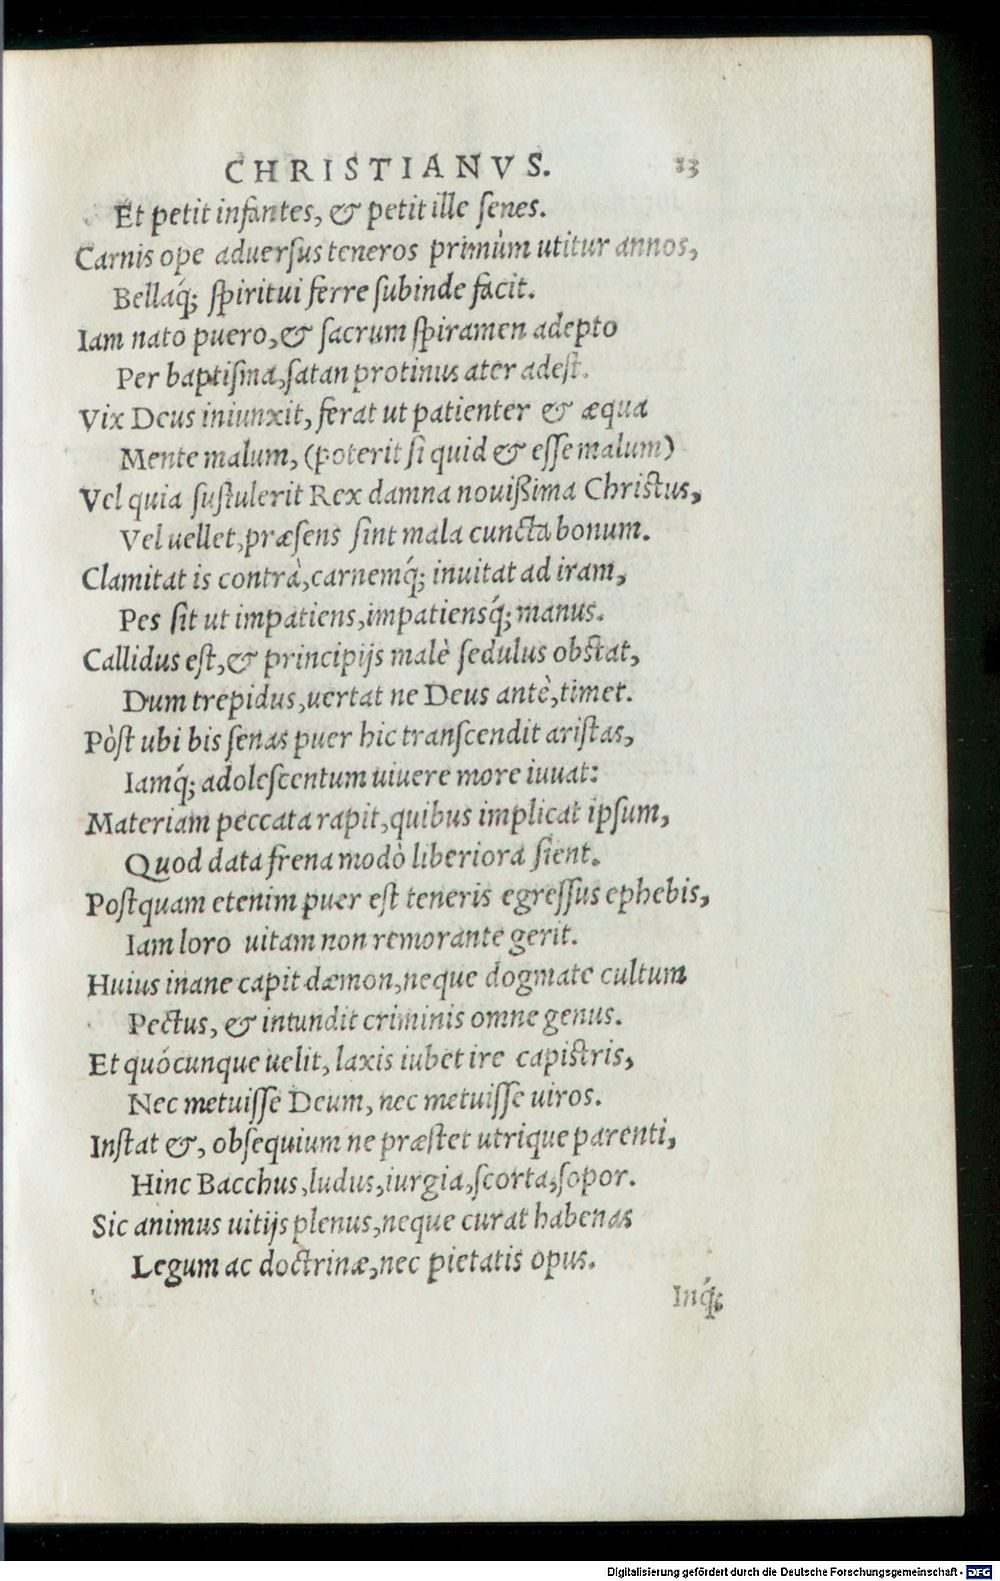 CHRISTIANVS. 13
Et petit infantes, & petit ille ſenes.
Carnis ope aduerſus teneros primùm utitur annos,
Bellaq́; ſpiritui ferre ſubinde facit.
Iam nato puero, & ſacrum ſpiramen adepto
Per baptiſma, ſatan protinus ater adeſt.
Vix Deus iniunxit, ferat ut patienter & æqua
Mente malum, (poterit ſi quid & eſſe malum)
Vel quia ſuſtulerit Rex damna nouißima Chriſtus,
Vel uellet, præſens ſint mala cuncta bonum.
Clamitat is contrà, carnemq́; inuitat ad iram,
Pes ſit ut impatiens, impatiensq́; manus.
Callidus eſt, & principijs malè ſedulus obſtat,
Dum trepidus, uertat ne Deus antè, timet.
Pòſt ubi bis ſenas puer hic tranſcendit ariſtas,
Iamq́; adoleſcentum uiuere more iuuat:
Materiam peccata rapit, quibus implicat ipſum,
Quod data frena modò liberiora ſient.
Poſtquam etenim puer eſt teneris egreſſus ephebis,
Iam loro uitam non remorante gerit.
Huius inane capit dæmon, neque dogmate cultum
Pectus, & intundit criminis omne genus.
Et quócunque uelit, laxis iubet ire capiſtris,
Nec metuiſſe Deum, nec metuiſſe uiros.
Inſtat &, obſequium ne præſtet utrique parenti,
Hinc Bacchus, ludus, iurgia, ſcorta, ſopor.
Sic animus uitijs plenus, neque curat habenas
Legum ac doctrinæ, nec pietatis opus.
Inq́;
Digitalisierung gefördert durch die Deutsche Forschungsgemeinschaft - DFG